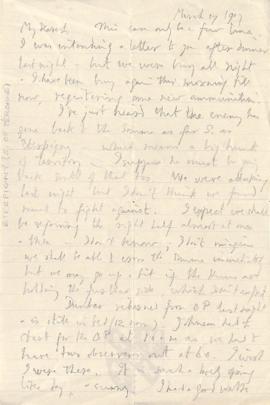 March 19 1917
My dearest. This can only be a few lines.
I was intending a letter to you after dinner
last night - but we were busy all night
& I have been busy again this morning till
now, registering some new ammunition.
I've just heard that the enemy has
gone back to the Somme as far S. as
Eterpigny which means a big hunk
of territory. I suppose he must be
back south of that too. We were attacking
last night but I don't think we found
much to fight against. I expect we shall
be rejoining the right half almost at once
- then I don't know, I don't imagine
we shall be able to cross the Somme
but we may go up a bit if the Huns are
holding the further side which I don't
Dunbar returned from O.P. last night
& is still in bed (12 noon).
start for the O.P. at as we had to
have two observers out at 6.0. I wish
I were there. It is such a lovely
day, & sunny. I had a good walk
ETERPIGNY (S. OF PERONNE)